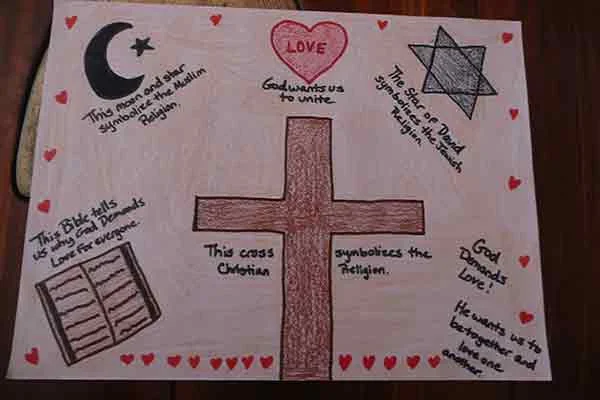 LOVE
God wants us
to unite
This moon and star
symbolize the Muslim
Religion.
The Star of David
symbolizes the Jewish
Religion.
This Bible tells
us why God Demands
Love for everyone.
This cross symbolizes the
Christian Religion.
God
Demands
Love!
He wants us to
be together and
love one
another.